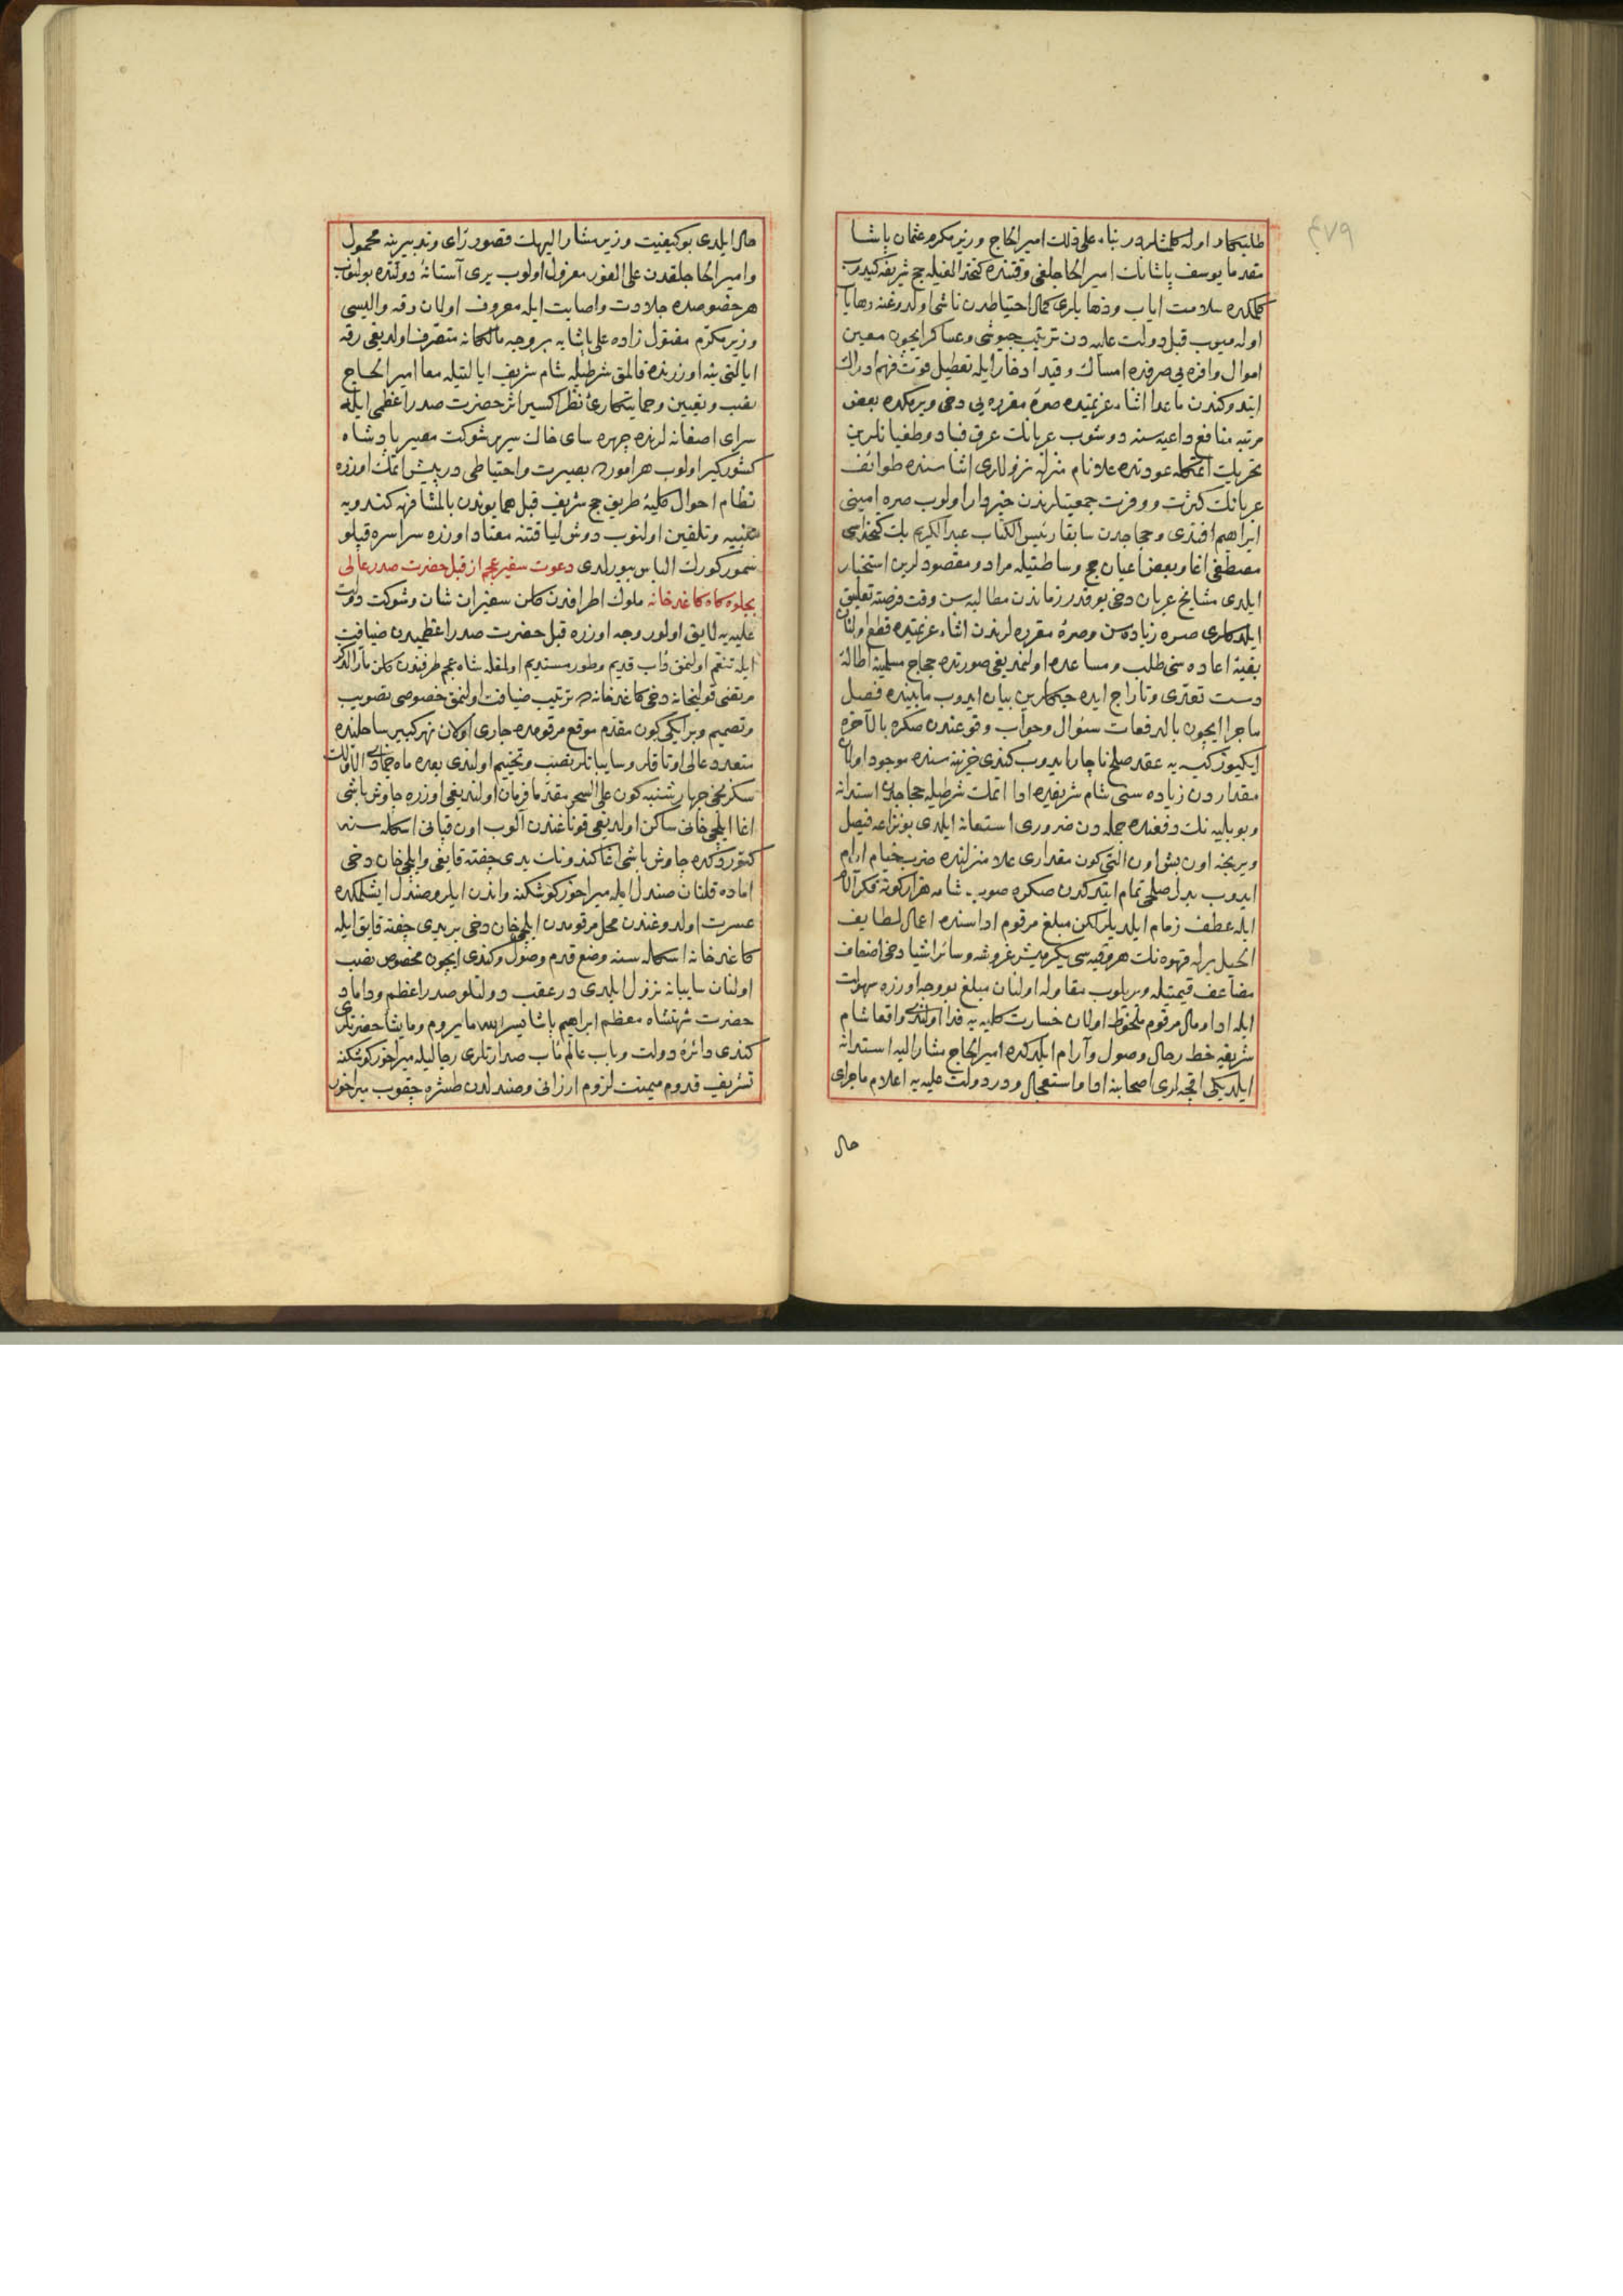 ٤٧٩
طلبكار اوله كلمشلردر بناء على ذلك امير الحاج وزير مكرم عثمان پاشا
مقدما يوسف پاشانك امير الحاجلغى وقتنده كتخدالغيله حج شريفه كيدوب
كلمكده سلامت اياب وذهابلرى كمال احتياطدن ناشى اولدوغنه
اوله ميوب قبل دولت عليه دن ترتيب جيوش وعساكر ايچون معين
اموال وافره بى صرفده امساك وقيد ادخار ايله تعطيل قوت فهم وادراك
ايتدوكندن ماعدا اثناء عزيمتده صره مقرره بى دخى ويرمكده بعض
مرتبه منافع داعيه سنه دوشوب عربانك عرق فساد وطغيانلرين
تحريك اتمكله عودتده علا نام منزله نزوللرى اثناسنده طوائف
عربانك كثرت ووفرت جمعيتلرندن خبردار اولوب صره امينى
ابراهيم افندى وحجاجدن سابقا رئيس الكتاب عبد الكريم بك كتخداسى
مصطفى اغا وبعض اعيان حج وساطتيله مراد ومقصودلرين استخبار
ايلدى مشايخ عربان دخى بو قدر زماندن مطالبه سن وقت فرصته تعليق
ايلدكلرى صره زياده سن وصره مقرره لرندن اثناء عزيمتده قطع اولنان
بقيه اعاده سنى طلب ومساعده اولنمديغى صورتده حجاج مسلمينه اطاله
دست تعدى وتاراج ايده جكلرين بيان ايدوب مابينده فصل
ماجرا ايچون بالدفعات سئوال وجواب وقوعندن صكره بالآخره
ايكيوز كيسه يه عقد صلح ناچار ايدوب كندى خزينه سنده موجود اولان
مقداردن زياده سنى شام شريفده ادا اتمك شرطيله حجاجدن استدانه
وبو بليه نك دفعنده جمله دن ضرورى استعانه ايلدى بو نزاعه فيصل
ويرنجه اون بش اون التى كون مقدارى علا منزلنده ضرب خيام ارام
ايدوب بدل صلحى تمام ايتدكدن صكره صوب شامه هزار كونه فكر آلام
ايله عطف زمام ايلديلر لكن مبلغ مرقوم اداسنده اعمال لطايف
الحيل برله قهوه نك هر وقيه سى يكرميشر غروشه وسائر اشيا دخى اضعاف
مضاعف قيمتيله ويريلوب مقاوله اولنان مبلغ بو وجه اوزره سهولت
ايله ادا ومال مرقوم ملحوظ اولان خسارت كليه يه فدا اولندى واقعا شام
شريفه حط رحال وصول وآرام ايلدكده امير الحاج مشار اليه استدانه
ايلديكى اقچه لرى اصحابنه ادا واستعجال ودر دولت عليه يه اعلام ماجراى
حال
حال ايلدى بو كيفيت وزير مشار اليهك قصور راى وتدبيرينه محمول
وامير الحاجلقدن على الفور معزول اولوب يرى آستانه دولتده بولنوب
هر خصوصده جلادت واصابت ايله معروف اولان رقه واليسى
وزير مكرم مقتول زاده على پاشايه بر وجه مالكانه متصرف اولديغى رقه
ايالتى ينه اوزرنده قالمق شرطيله شام شريف ايالتيله معا امير الحاج
نصب وتعيين وحمايتكارئ نظر اكسير اثر حضرت صدر اعظمى ايله
سراى اصفانه لرنده چهره ساى خاك سرير شوكت مصير پادشاه
كشوركير اولوب هر امورده بصيرت واحتياطى درپيش اتمك اوزره
نظام احوال كليه طريق حج شريف قبل همايوندن بالمشافهه كندويه
تنبيه وتلقين اولنوب دوش لياقتنه معتاد اوزره سراسره قپلو
سمور كورك الباس بيورلدى دعوت سفير عجم از قبل حضرت صدر عالى
بجلوه كاه كاغدخانه ملوك اطرافندن كلن سفيران شان وشوكت دولت
عليه يه لايق اولور وجه اوزره قبل حضرت صدر اعظميدن ضيافت
ايله تنعم اولنمق داب قديم وطور مستديم اولمغله شاه عجم طرفندن كلن مار الذكر
مرتضى قولى خانه دخى كاغدخانه ده ترتيب ضيافت اولنمق خصوصى تصويب
وتصميم وبر ايكى كون مقدم موقع مرقومده جارى اولان نهر كبير ساحلنده
متعدد عالى اوتاقلر وسايبانلر نصب وتخييم اولندى بعده ماه جمادى الاولينك
سكزنجى چهارشنبه كون على السحر مقدما فرمان اولنديغى اوزره چاوش باشى
اغا ايلچى خانى ساكن اولديغى قوناغندن آلوب اون قپانى اسكله سنه
كتوردكده چاوش باشى اغا كندونك يدى چفته قايغى وايلچى خان دخى
اماده قلنان صندل ايله ميراخور كوشكنه واندن ايلرو صندل ايشلمكده
عسرت اولدوغندن محل مرقومدن ايلچى خان دخى بر يدى چفته قايق ايله
كاغدخانه اسكله سنه وضع قدم وصول وكندى ايچون مخصوص نصب
اولنان سايبانه نزول ايلدى در عقب دولتلو صدر اعظم وداماد
حضرت شهنشاه معظم ابراهيم پاشا يسر الله ما يروم وما يشا حضرتلرى
كندى دائره دولت وباب عالم مآب صدارتلرى رجاليله ميراخور كوشكنه
تشريف قدوم ميمنت لزوم ارزانى وصندلدن طشره چقوب ميراخور